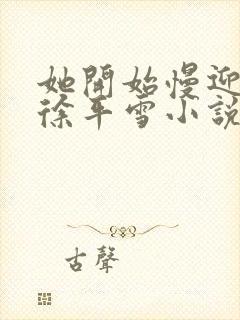 她開始慢迎
徐平雪小說
古聲